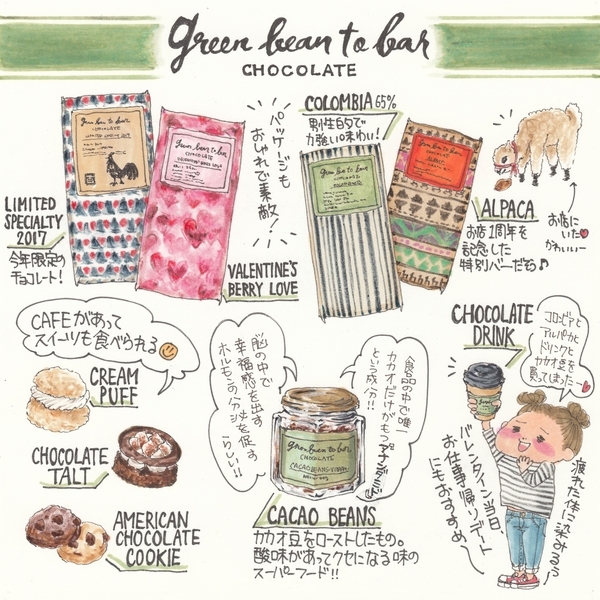 green bean to bar
CHOCOLATE
LIMITED
SPECIALTY
2017
今年限定の
チョコレート!
パッケージも
おしゃれで素敵!
VALENTINE'S
BERRY LOVE
COLOMBIA 65%
野生的で
力強い味わい!
ALPACA
お店1周年を
記念した
特別バーだち♪
お店に
いた
かわいいー
CAFEがあって
スイーツも食べられる
CREAM
PUFF
CHOCOLATE
TALT
AMERICAN
CHOCOLATE
COOKIE
脳の中で
幸福感を出す
ホルモンの分泌を促す
らしい!!
食品の中で唯一
カカオだけがもつ
という成分!!
green bean to bar
CHOCOLATE
CACAO BEANS
カカオ豆をローストしたもの。
酸味があってクセになる味の
スーパーフード!!
CHOCOLATE
DRINK
コロンビアと
アルパカと
ドリンクと
カカオ豆を
買ってしまったー
疲れた体に染みるぅぅ
バレンタイン当日
お仕事帰りデート
にもおすすめー